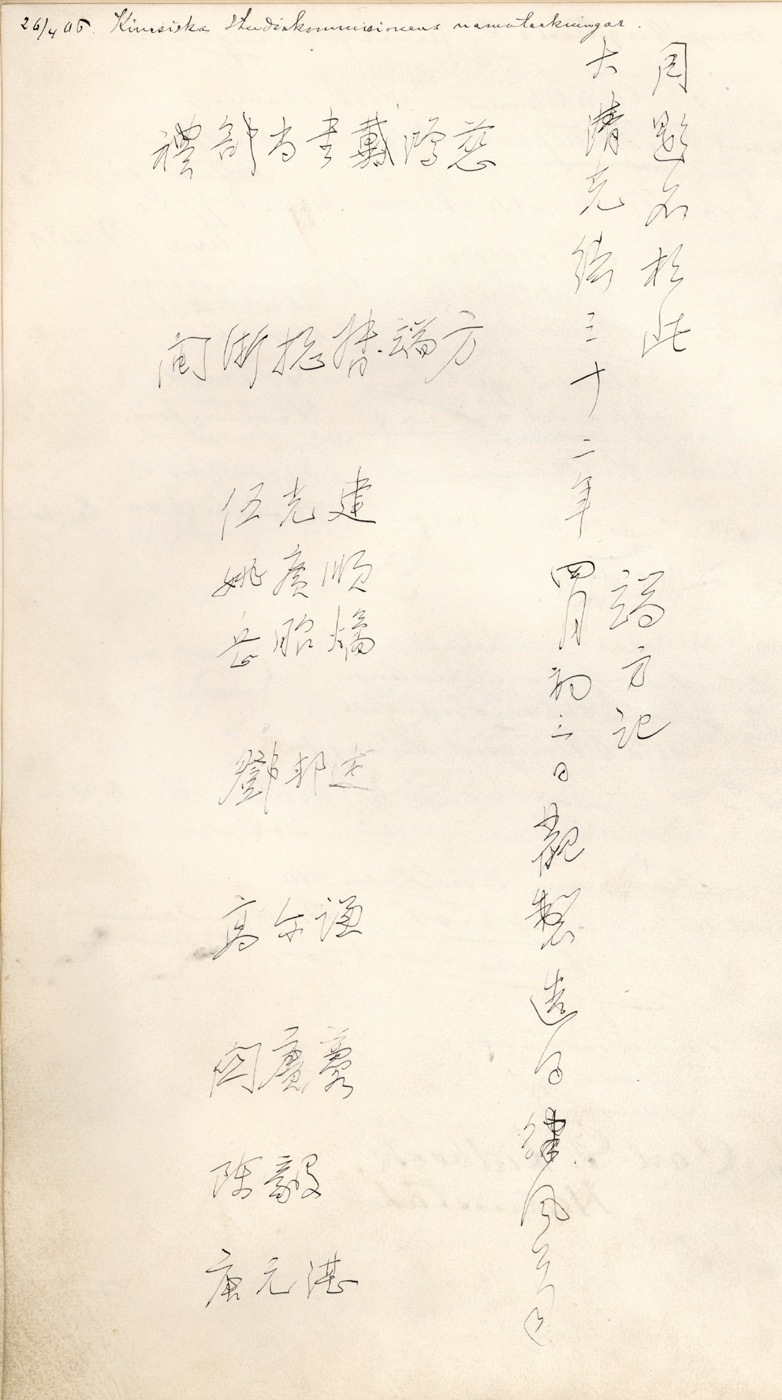 26/4 06. Kinesiska Studiekommissionens namnteckningar.
大清光緒三十二年四月初三日觀製造得律風公司
同題名於此
端方記
禮部尚書戴鴻慈
閩浙總督端方
伍光建
姚廣順
岳昭燏
鄧邦述
高尔謙
関賡麐
陳毅
唐元湛